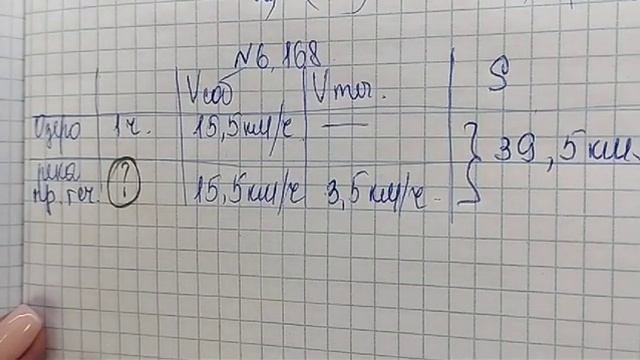 N6.168
Vсоб Vтеч. S
Озеро 1ч. 15,5км/ч — } 39,5км.
река
пр. теч. ? 15,5км/ч 3,5км/ч.